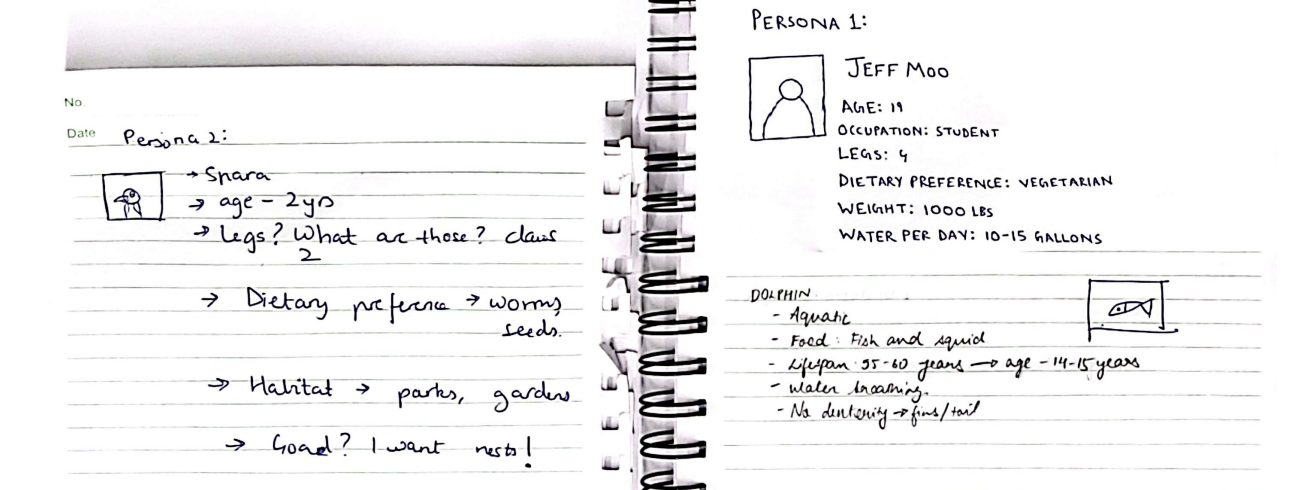 No.
Date
Persona 2:
→ Sparа
→ age - 2yrs
→ Legs? What are those? claws
2
→ Dietary preference → worms,
seeds.
→ Habitat → parks, gardens
→ Goal? I want nests!
PERSONA 1:
JEFF MOO
AGE: 19
OCCUPATION: STUDENT
LEGS: 4
DIETARY PREFERENCE: VEGETARIAN
WEIGHT: 1000 LBS
WATER PER DAY: 10-15 GALLONS
DOLPHIN
- Aquatic
- Food: Fish and squid
- Lifespan: 55-60 years → age - 14-15 years
- water
- No dexterity → fins/tail